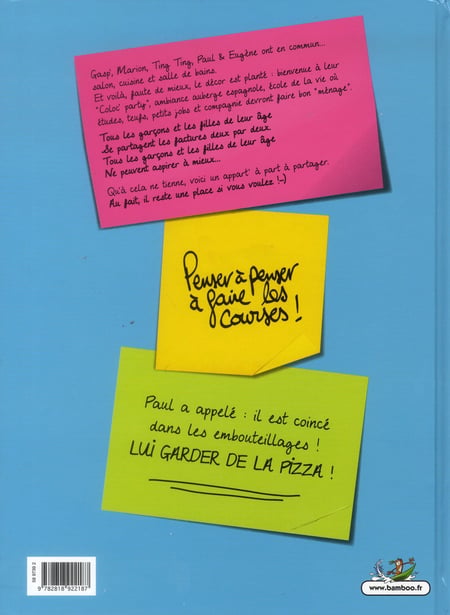 Gaspi, Marion, Ting Ting, Paul & Eugène ont en commun...
salon, cuisine et salle de bains.
Et voilà, faute de mieux, le décor est planté : bienvenue à leur
"Coloc' party", ambiance auberge espagnole, école de la vie où
études, teufs, petits jobs et compagnie devront faire bon "ménage".
Tous les garçons et les filles de leur âge
Se partagent les factures deux par deux.
Tous les garçons et les filles de leur âge
Ne peuvent aspirer à mieux...
Qu'à cela ne tienne, voici un appart' à part à partager.
Au fait, il reste une place si vous voulez !-)
Penser à penser
à faire les
courses !
Paul a appelé : il est coincé
dans les embouteillages !
LUI GARDER DE LA PIZZA !
58 9736 2
9 782818 922187
www.bamboo.fr